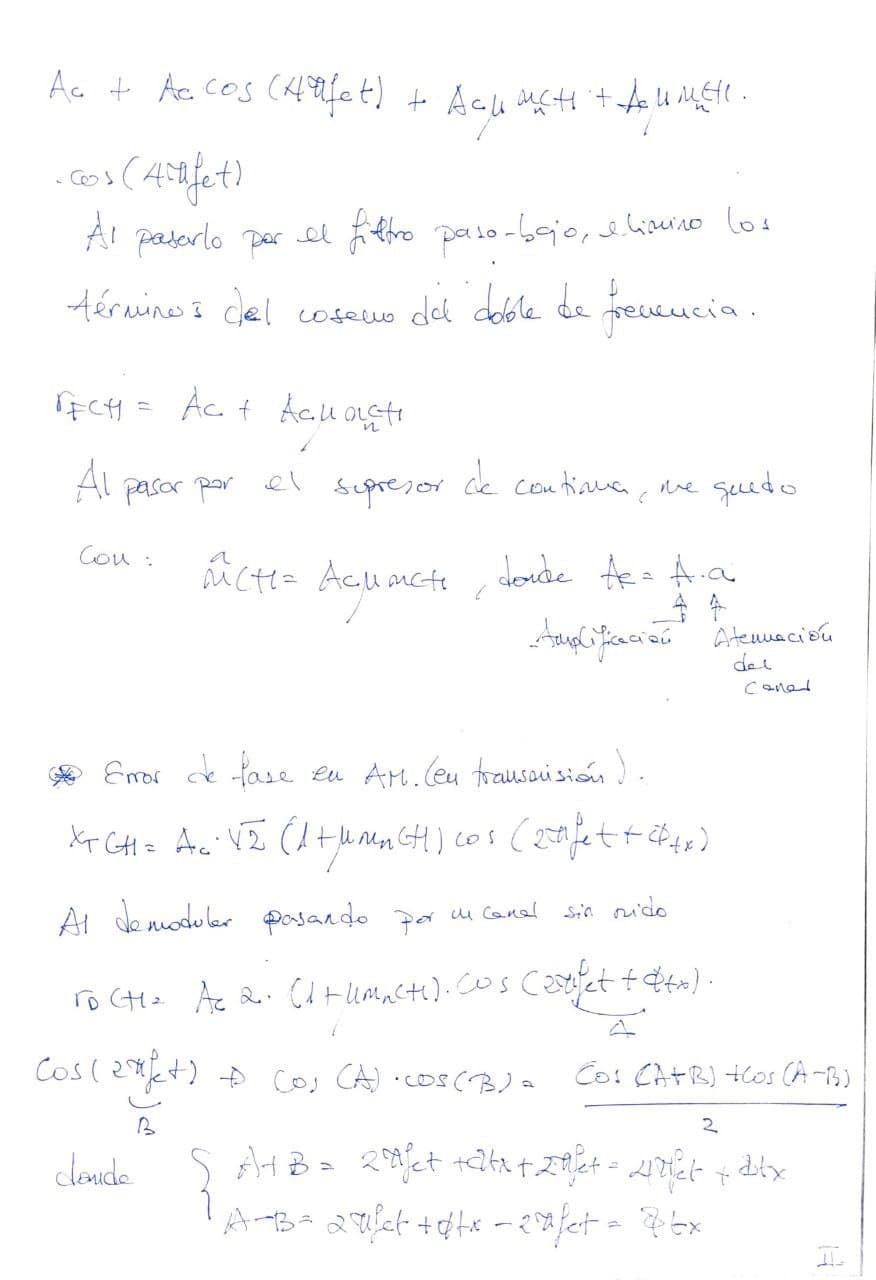 Ac + Ac cos(4πfct) + Acμ mn(t) + Acμ mn(t).
. cos(4πfct)
Al pasarlo por el filtro paso-bajo, elimino los
términos del coseno del doble de frecuencia.
rF(t) = Ac + Acμ mn(t)
Al pasar por el supresor de continua, me quedo
con : m̂(t) = Acμ m(t), donde Ac = A.a
Amplificación Atenuación
del
canal
* Error de fase en AM. (en transmisión).
xT(t) = Ac.√2 (1+μmn(t)) cos(2πfct+ϕtx)
Al demodular pasando por un canal sin ruido
rD(t) = Ac 2. (1+μmn(t)). cos(2πfct+ϕtx).
A
Cos(2πfct) → cos(A).cos(B) = cos(A+B)+cos(A-B)
B 2
donde { A+B = 2πfct+ϕtx+2πfct = 4πfct+ϕtx
A-B = 2πfct+ϕtx-2πfct = ϕtx
II